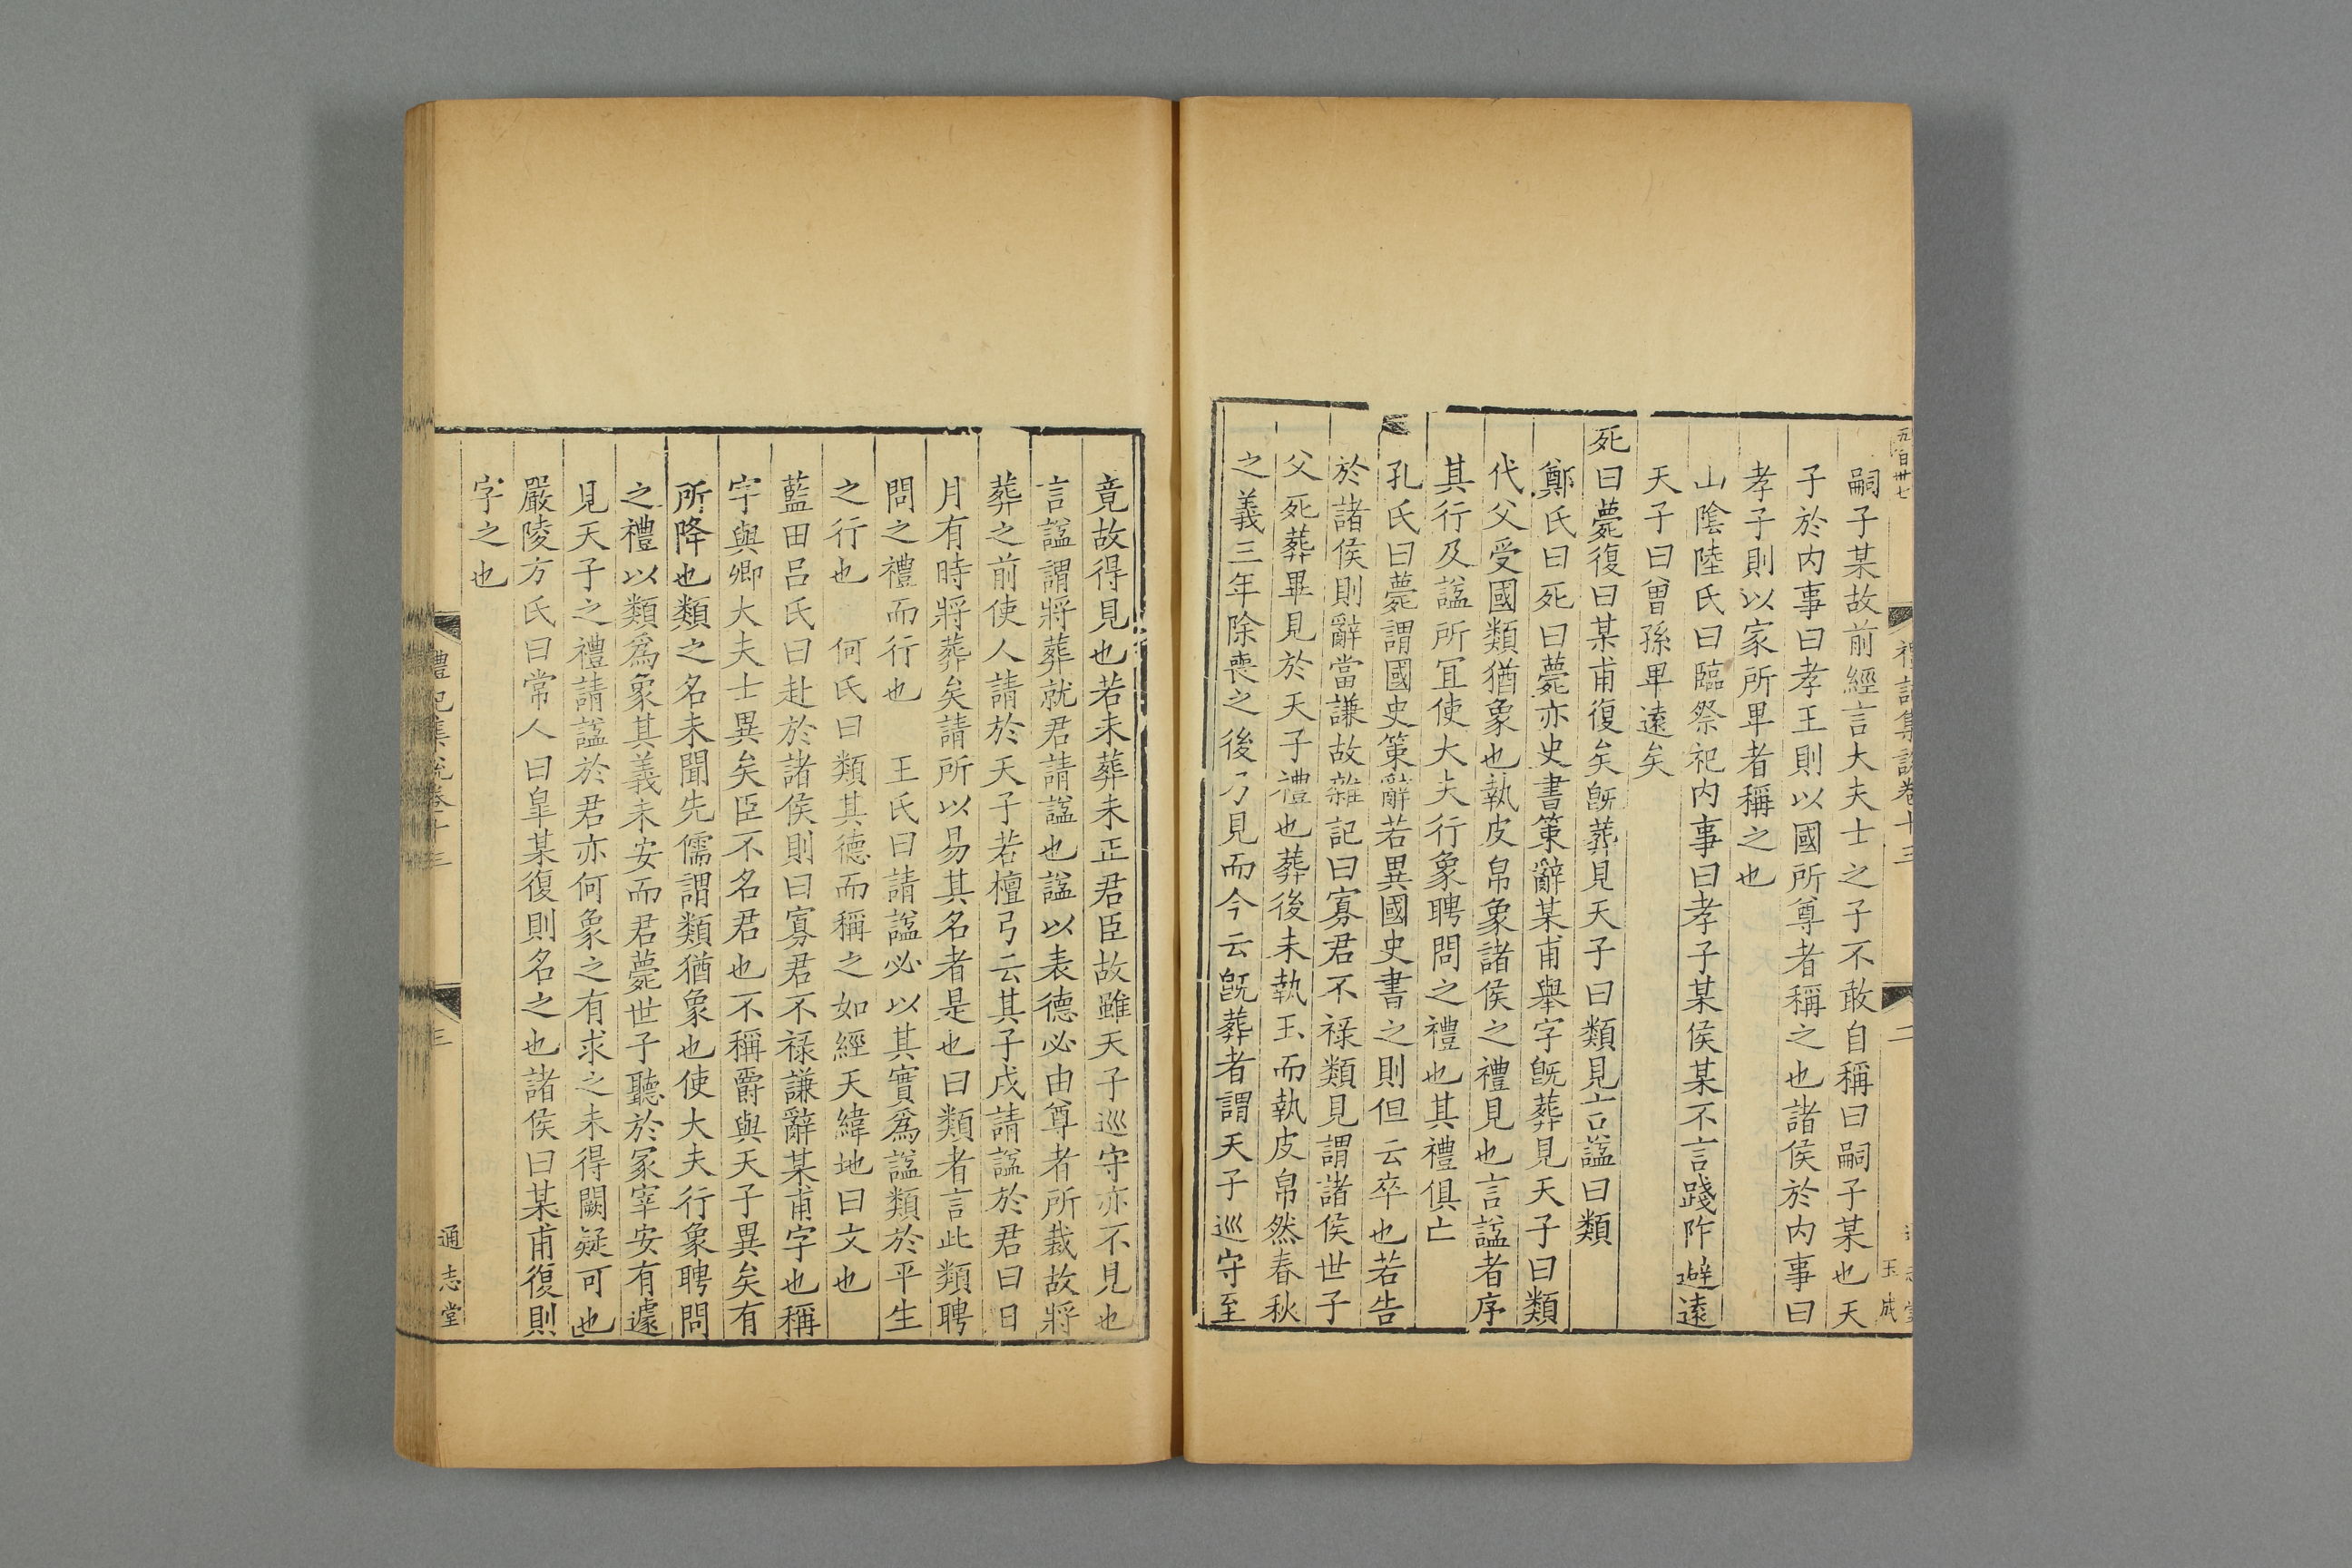 五百卅七
禮記集說卷十三
二
玉成
嗣子某故前經言大夫士之子不敢自稱曰嗣子某也天
子於内事曰孝王則以國所尊者稱之也諸侯於内事曰
孝子則以家所卑者稱之也
山陰陸氏曰臨祭祀内事曰孝子某侯某不言踐阼避遠
天子曰曾孫卑遠矣
死曰薨復曰某甫復矣旣葬見天子曰類見言諡曰類
鄭氏曰死曰薨亦史書策辭某甫舉字旣葬見天子曰類
代父受國類猶象也執皮帛象諸侯之禮見也言諡者序
其行及諡所宜使大夫行象聘問之禮也其禮俱亡
孔氏曰薨謂國史策辭若異國史書之則但云卒也若告
於諸侯則辭當謙故雜記曰寡君不祿類見謂諸侯世子
父死葬畢見於天子禮也葬後未執玉而執皮帛然春秋
之義三年除喪之後乃見而今云旣葬者謂天子巡守至
竟故得見也若未葬未正君臣故雖天子巡守亦不見也
言諡謂將葬就君請諡也諡以表德必由尊者所裁故將
葬之前使人請於天子若檀弓云其子戍請諡於君曰日
月有時將葬矣請所以易其名者是也曰類者言此類聘
問之禮而行也 王氏曰請諡必以其實爲諡類於平生
之行也 何氏曰類其德而稱之如經天緯地曰文也
藍田呂氏曰赴於諸侯則曰寡君不祿謙辭某甫字也稱
字與卿大夫士異矣臣不名君也不稱爵與天子異矣有
所降也類之名未聞先儒謂類猶象也使大夫行象聘問
之禮以類爲象其義未安而君薨世子聽於冢宰安有遽
見天子之禮請諡於君亦何象之有求之未得闕疑可也
嚴陵方氏曰常人曰皐某復則名之也諸侯曰某甫復則
字之也
禮記集說卷十三
三
通志堂